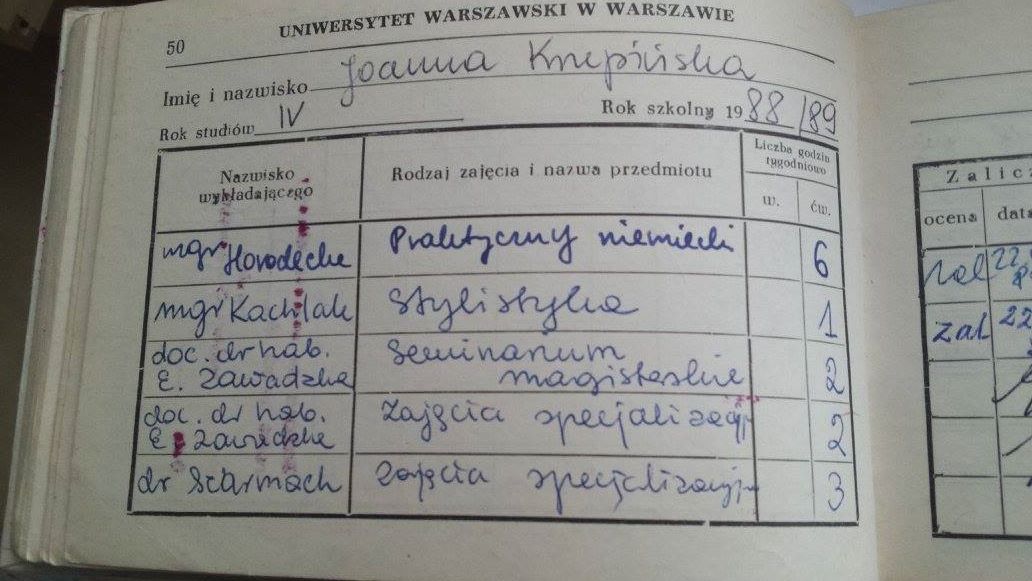 50
UNIWERSYTET WARSZAWSKI W WARSZAWIE
Imię i nazwisko Joanna Krepińska
Rok studiów IV Rok szkolny 1988/89
Nazwisko wykładającego Rodzaj zajęcia i nazwa przedmiotu Liczba godzin tygodniowo
w. ćw.
mgr Horodecka Praktyczny niemiecki 6
mgr Stylistyka 1
doc. dr hab. Seminarium
E. Zawadzka magisterskie 2
doc. dr hab. Zajęcia specjalizacyj
E. Zawadzka 2
dr Szarmach zajęcia specjalizacyj 3
Zalicz
ocena data
zal 22.
zal 22